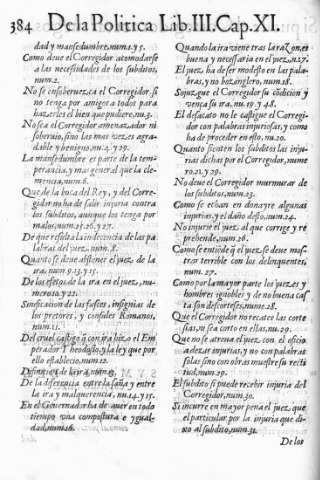 384 De la Politica Lib. III. Cap. XI.
dad y mansedumbre, num. 2. y 5.
Como deue el Corregidor acomodarse
a las necesidades de los subditos,
num. 2.
No se ensoberuezca el Corregidor si
no tenga por amigos a todos para
hazerles el bien que pudiere, nu. 3.
No sea el Corregidor amenazador ni
soberuio, sino las mas vezes agra-
dable y benigno, nu. 4. y 29.
La mansedumbre es parte de la tem-
perancia, y mas general que la cle-
mencia, num. 6.
Que de la boca del Rey, y del Corre-
gidor no ha de salir injuria contra
los subditos, aunque los tenga por
malos, num. 25. 26. y 27.
De que resulta la indecencia de las pa
labras del juez, num. 8.
Quanto se deue abstener el juez de la
ira, num. 9. 13. y 15.
De los efetos de la ira en el juez, nu-
mero 10. y 22.
Sinificacion de las fasces, insignias de
los pretores, y consules Romanos,
num. 11.
Del cruel castigo q̃ con ira hizo el Em
perador Theodosio, y la ley que por
ello establecio, num. 12.
Difinicion de la ira, num. 13.
De la diferencia entre la saña y entre
la ira y malquerencia, nu. 14. y 15.
En el Gouernador ha de auer en todo
tiempo vna compostura e ygual-
dad, num. 16.
Quando la ira viene tras la razon, es
buena y necessaria en el juez, n. 17.
El juez ha de ser modesto en las pala-
bras, y no hozanglero, num. 18.
Sojuzgue el Corregidor su cõdicion y
vença su ira, nu. 19. y 48.
El desacato no le castigue el Corregi-
dor con palabras injuriosas, y como
ha de proceder en esto, nu. 20.
Quanto sienten los subditos las inju-
rias dichas por el Corregidor, nume
ro. 21. y 29.
No deue el Corregidor murmurar de
los subditos, num. 23.
Como se echan en donayre algunas
injurias, y el daño desto, num. 24.
No injurie el juez al que corrige y re
prehende, num. 26.
Como se entiende q̃ el juez se deue mos-
trar terrible con los delinquentes,
num. 27.
Como por la mayor parte los juezes y
hombres iguobles y de no buena cas
ta son descorteses, num. 28.
Que el Corregidor no recatee las corte
sias, ni sea corto en ellas, nu. 29.
Que no se atreua el juez con el oficio
a dezir injurias, y no con palabras
solas, sino con obras muestre su recti
tud, num. 29.
El subdito si puede recebir injuria del
Corregidor, num. 30.
Si incurre en mayor pena el juez, que
el particular por la injuria que di-
xo al subdito, num. 31.
De los